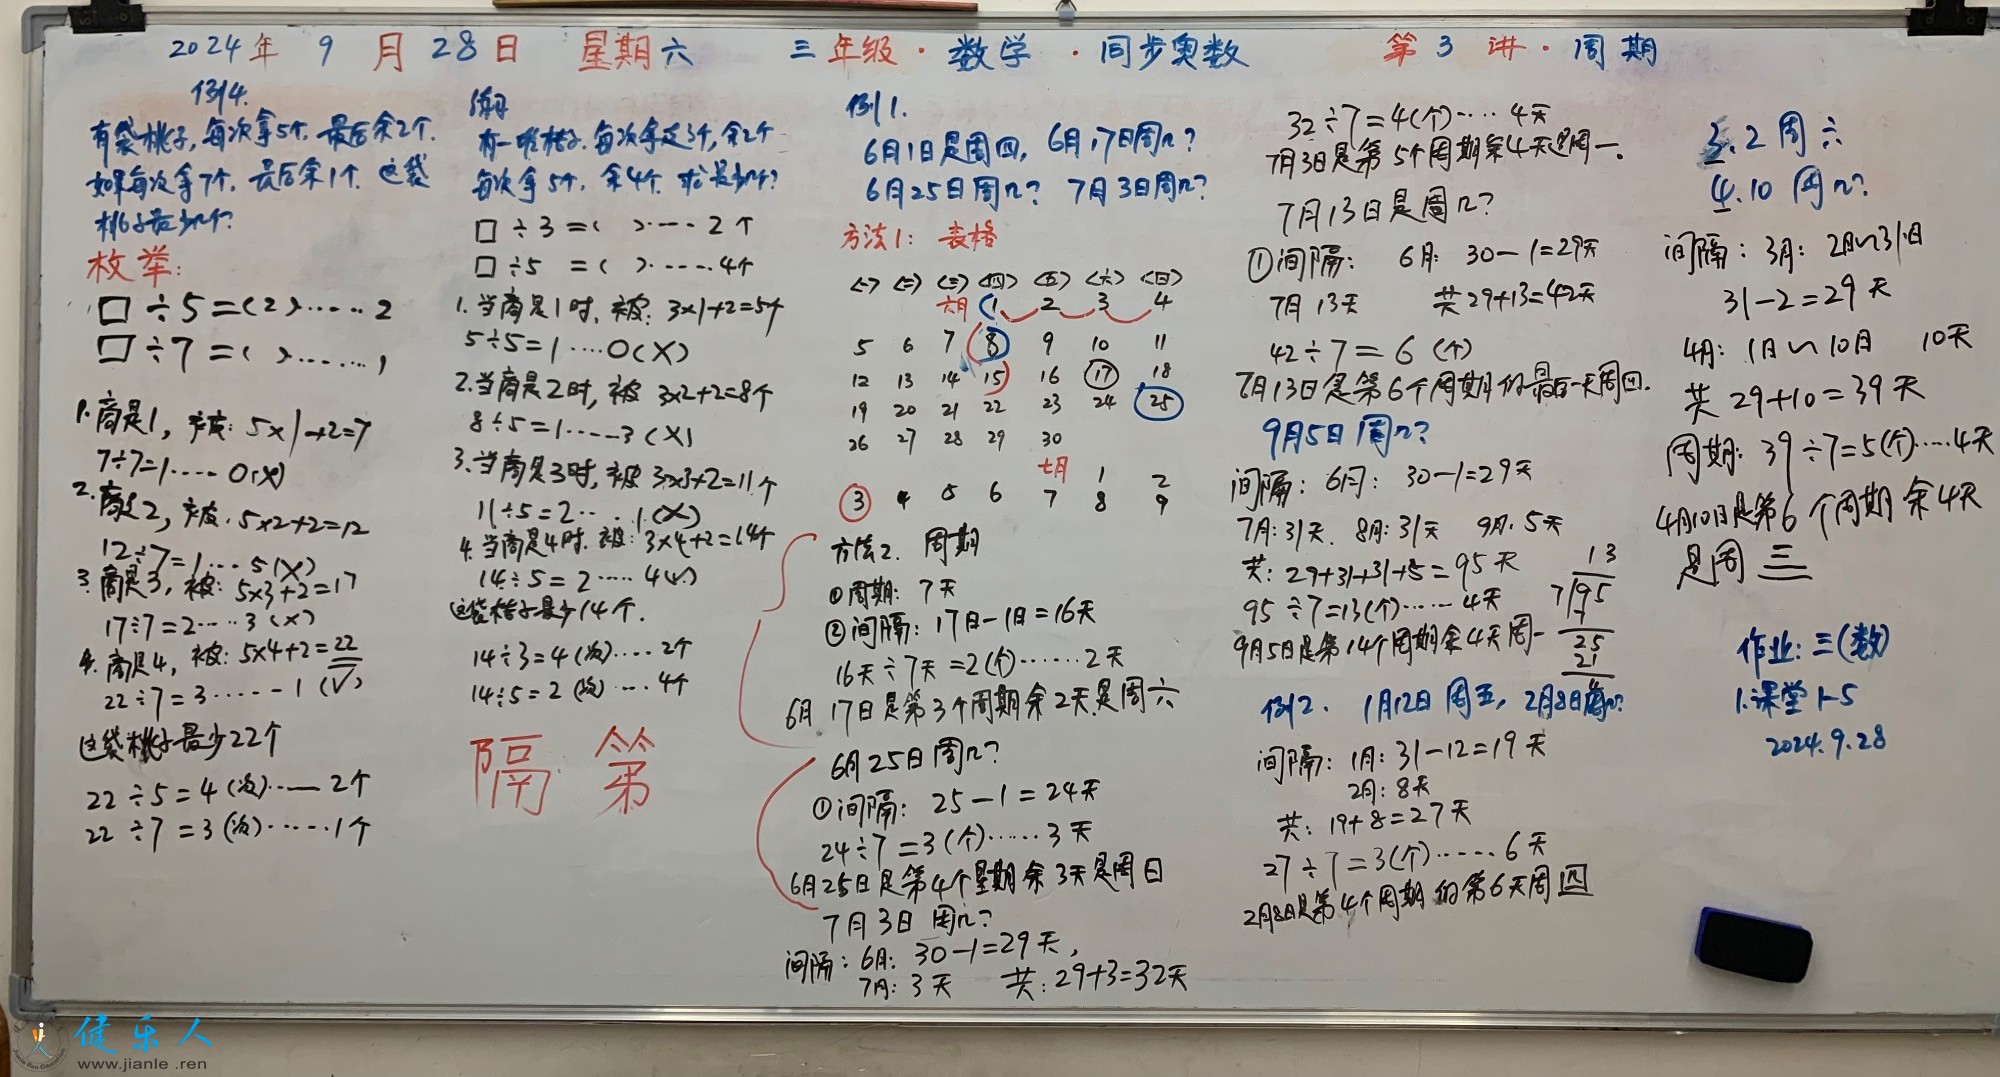 2024年 9月28日 星期六 三年级·数学·同步奥数 第3讲·周期
例4.
有袋桃子,每次拿5个,最后余2个.
如果每次拿7个,最后余1个.这袋
桃子最少几个?
枚举:
□÷5=(2)……2
□÷7=( )……1
1.商是1,被:5×1+2=7
7÷7=1……0(×)
2.商是2,被:5×2+2=12
12÷7=1…5(×)
3.商是3,被:5×3+2=17
17÷7=2……3(×)
4.商是4,被:5×4+2=22
22÷7=3……1(√)
这袋桃子最少22个
22÷5=4(次)……2个
22÷7=3(次)……1个
有一堆桔子.每次拿走3个,余2个
每次拿5个,余4个.
□÷3=( )……2个
□÷5=( )……4个
1.当商是1时,被:3×1+2=5个
5÷5=1……0(×)
2.当商是2时,被 3×2+2=8个
8÷5=1……3(×)
3.当商是3时,被 3×3+2=11个
11÷5=2……1(×)
4.当商是4时.被:3×4+2=14个
14÷5=2……4(√)
这袋桔子最少14个.
14÷3=4(次)……2个
14÷5=2(次)……4个
隔 第
例1.
6月1日是周四,6月17日周几?
6月25日周几? 7月3日周几?
方法1: 表格
(一) (二) (三) (四) (五) (六) (日)
六月 1 2 3 4
5 6 7 8 9 10 11
12 13 14 15 16 17 18
19 20 21 22 23 24 25
26 27 28 29 30
七月 1 2
3 4 5 6 7 8 9
方法2. 周期
①周期: 7天
②间隔: 17日-1日=16天
16天÷7天=2(个)……2天
6月17日是第3个周期余2天是周六
6月25日周几?
①间隔: 25-1=24天
24÷7=3(个)……3天
6月25日是第4个星期余3天是周日
7月3日 周几?
间隔: 6月: 30-1=29天,
7月: 3天 共:29+3=32天
32÷7=4(个)……4天
7月3日是第5个周期余4天是周一.
7月13日是周几?
①间隔: 6月: 30-1=29天
7月 13天 共29+13=42天
42÷7=6(个)
7月13日是第6个周期的最后一天周四.
9月5日周几?
间隔: 6月: 30-1=29天
7月:31天. 8月:31天 9月.5天
共: 29+31+31+5=95天
95÷7=13(个)……4天
9月5日是第14个周期余4天周一
13
7/95
7
25
21
4
例2. 1月12日周五, 2月8日周几?
间隔: 1月: 31-12=19天
2月: 8天
共: 19+8=27天
27÷7=3(个)……6天
2月8日是第4个周期的第6天周四
3.2周六
4.10周几?
间隔: 3月: 2日~31日
31-2=29天
4月: 1日~10日 10天
共 29+10=39天
周期: 39÷7=5(个)……4天
4月10日是第6个周期余4天
是周三
作业:三(数)
1.课堂1-5
2024.9.28
健乐人
www.jianle.ren